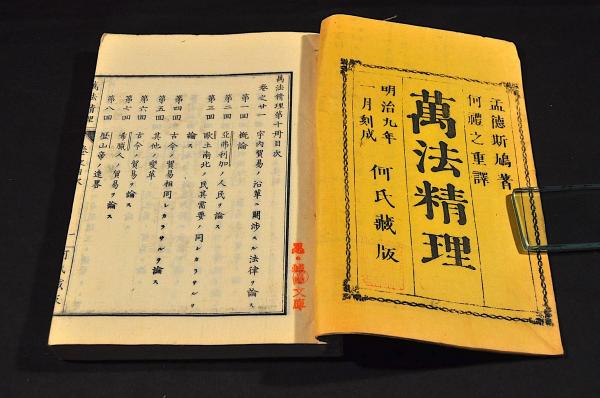 孟德斯鳩著
何禮之重譯
萬法精理
明治九年
一月刻成
何氏藏版
萬法精理第十冊目次
卷之廿一 宇內貿易ノ沿革ニ關渉スル法律ヲ論ス
第一回 概論
第二回 亞弗利加ノ人民ヲ論ス
第三回 歐土南北ノ民其需要ノ同シカラサルヲ
論ス
第四回 古今ノ貿易相同シカラサルヲ論ス
第五回 其他ノ變革
第六回 古今ノ貿易ヲ論ス
第七回 希臘人ノ貿易ヲ論ス
第八回 歷山帝ノ遠畧
萬法精理
文庫